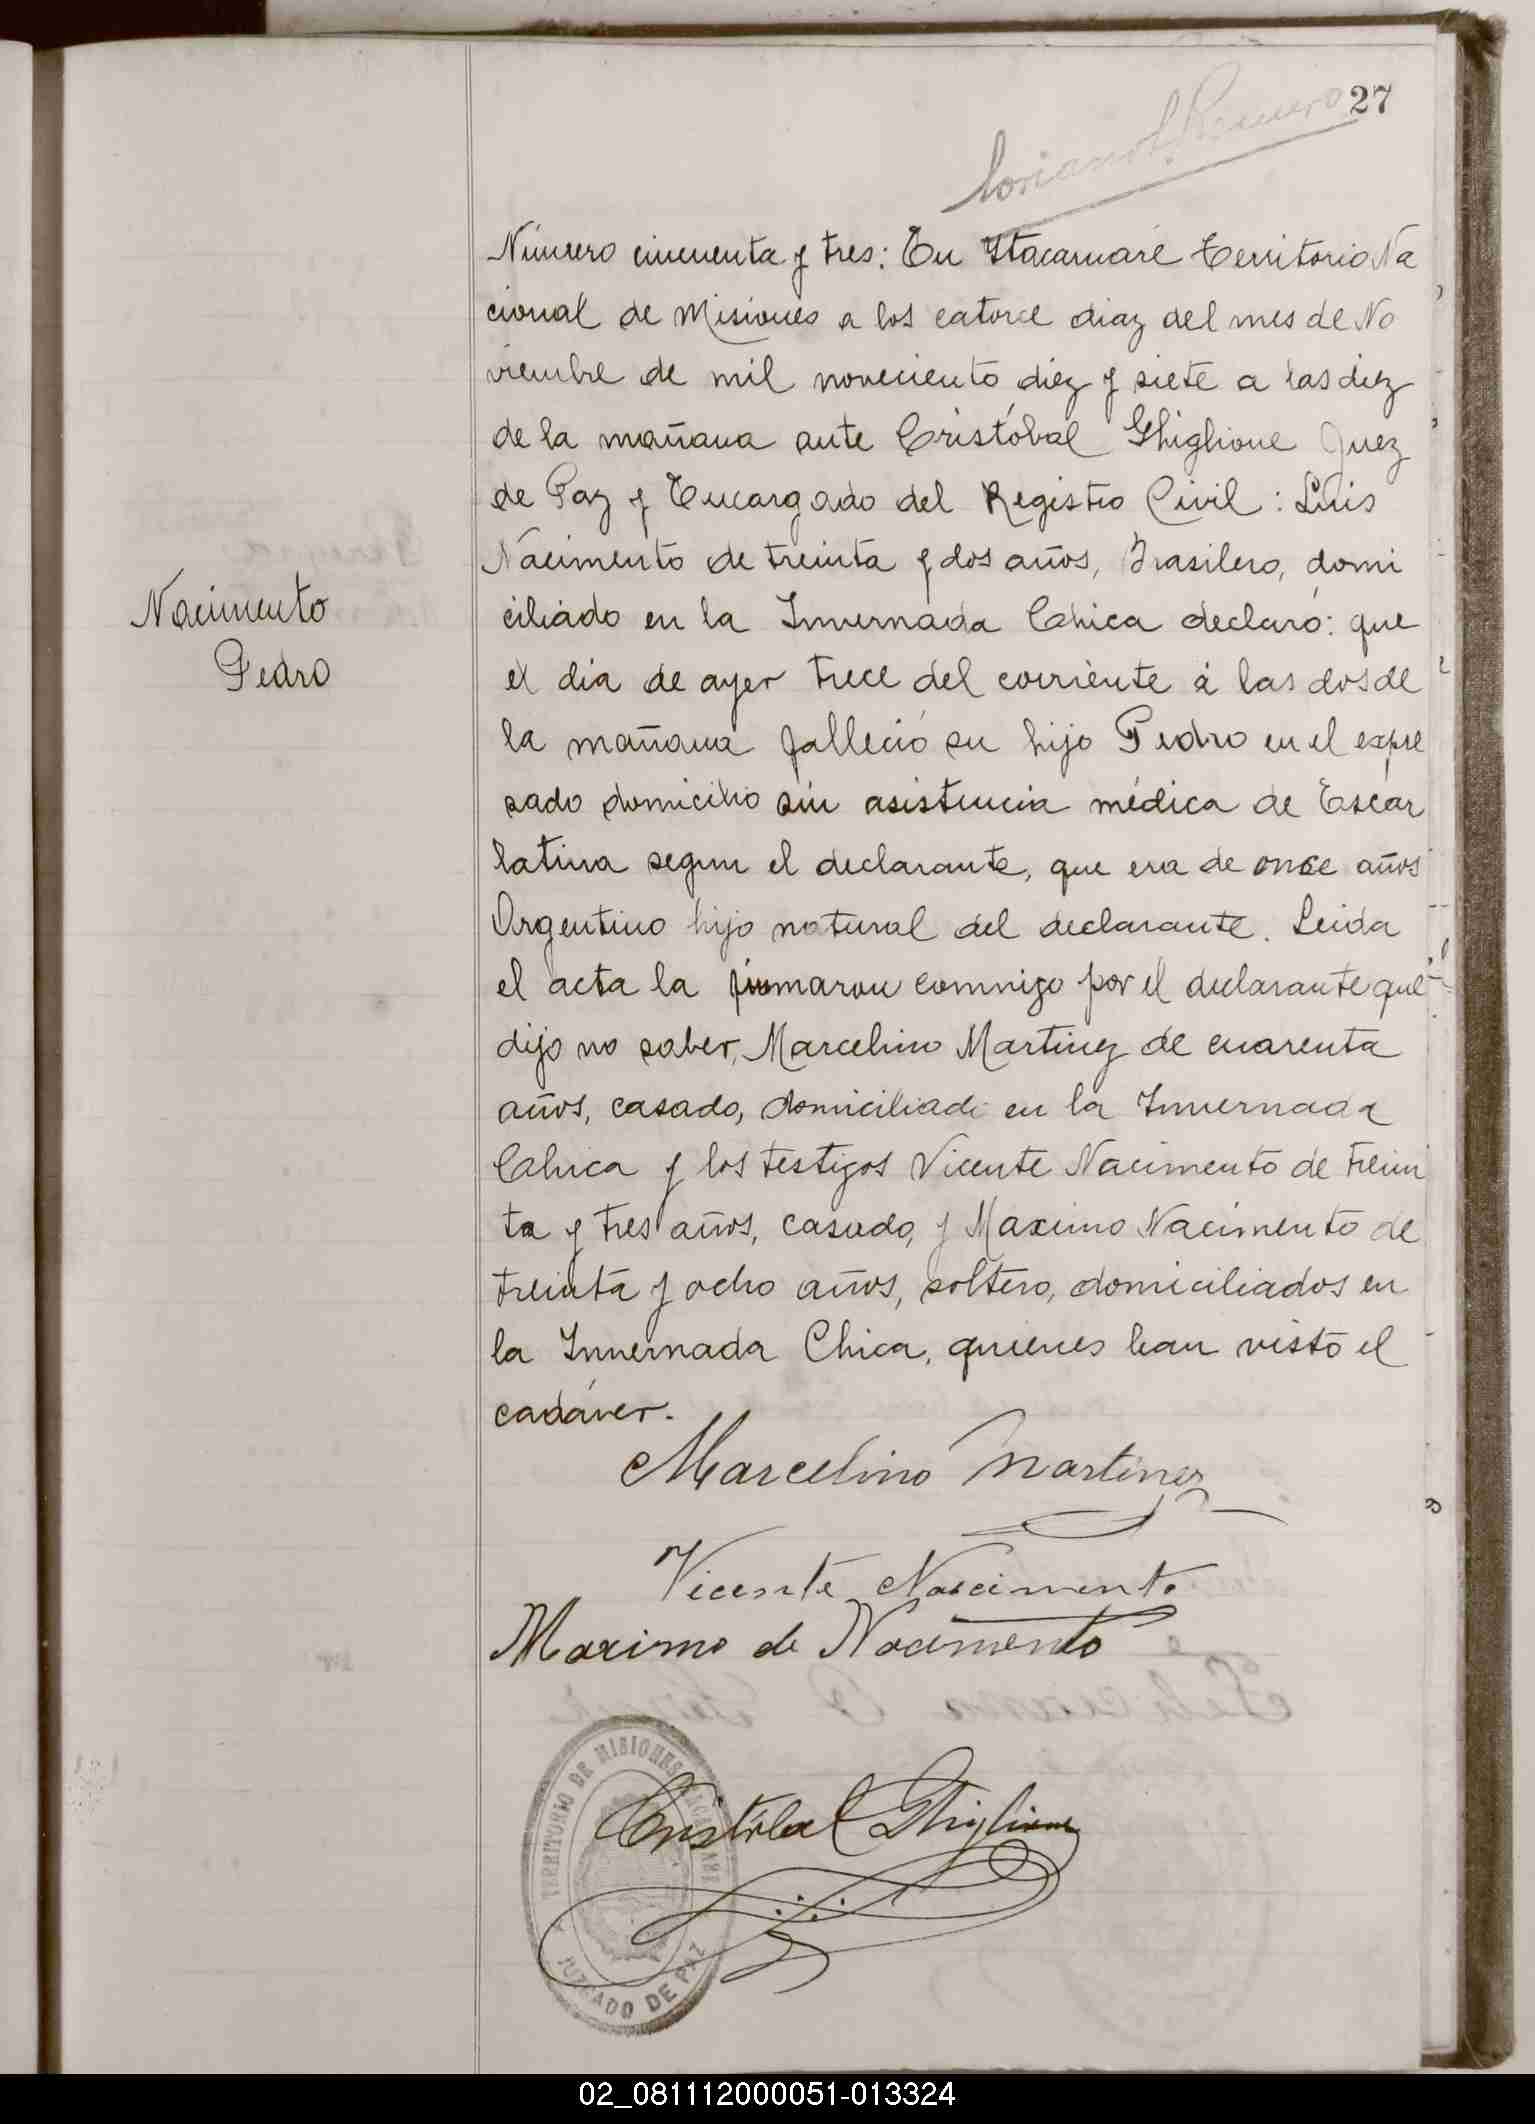 27
Loriano S. Romero
Número cincuenta y tres: En Itacaruaré Territorio Na
cional de Misiones a los catorce diaz del mes de No
viembre de mil noveciento diez y siete a las diez
de la mañana ante Cristóbal Ghiglione Juez
de Paz y Encargado del Registro Civil: Luis
Nacimento de treinta y dos años, Brasilero, domi
ciliado en la Invernada Chica declaró: que
el dia de ayer trece del corriente á las dos de
la mañana falleció su hijo Pedro en el expre
sado domicilio sin asistencia médica de Escar
latina segun el declarante, que era de once años
Argentino hijo natural del declarante. Leida
el acta la firmaron conmigo por el declarante que
dijo no saber, Marcelino Martinez de cuarenta
años, casado, domiciliado en la Invernada
Chica y los testigos Vicente Nacimento de trein
ta y tres años, casado, y Maximo Nacimento de
treinta y ocho años, soltero, domiciliados en
la Invernada Chica, quienes han visto el
cadáver.
Nacimento
Pedro
Marcelino Martinez
Vicente Nascimento
Maximo de Nacimento
Cristóbal Ghiglione
TERRITORIO DE MISIONES
JUZGADO DE PAZ
02_081112000051-013324